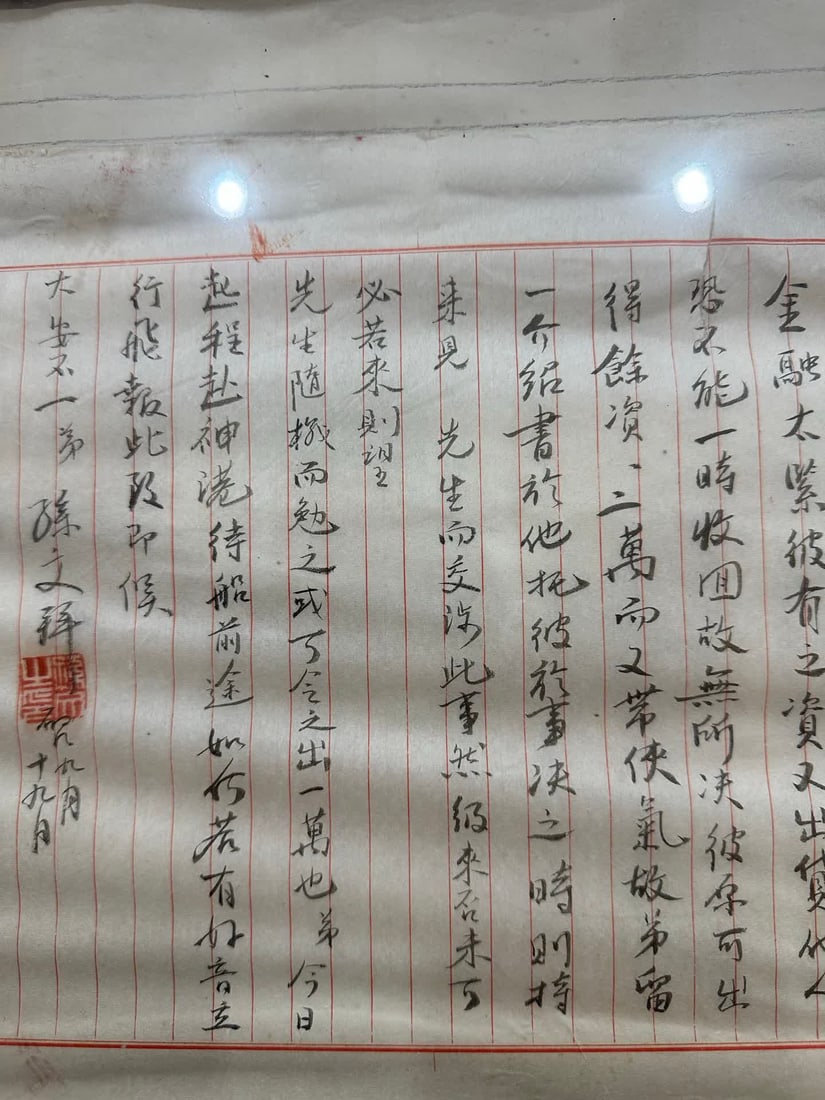 金融太緊彼有之資又出貸他人
恐不能一時收囬故無所决彼原可出
得餘資一二萬而又帶俠氣故弟留
一介紹書於他托彼於事决之時則持
来見 先生而交涉此事然彼來否未可
必若來則望
先生随機而勉之或可令之出一萬也弟今日
起程赴神港待船前途如何若有好音立
行飛報此致即候
大安不一弟 孫文拜
九月
十九日